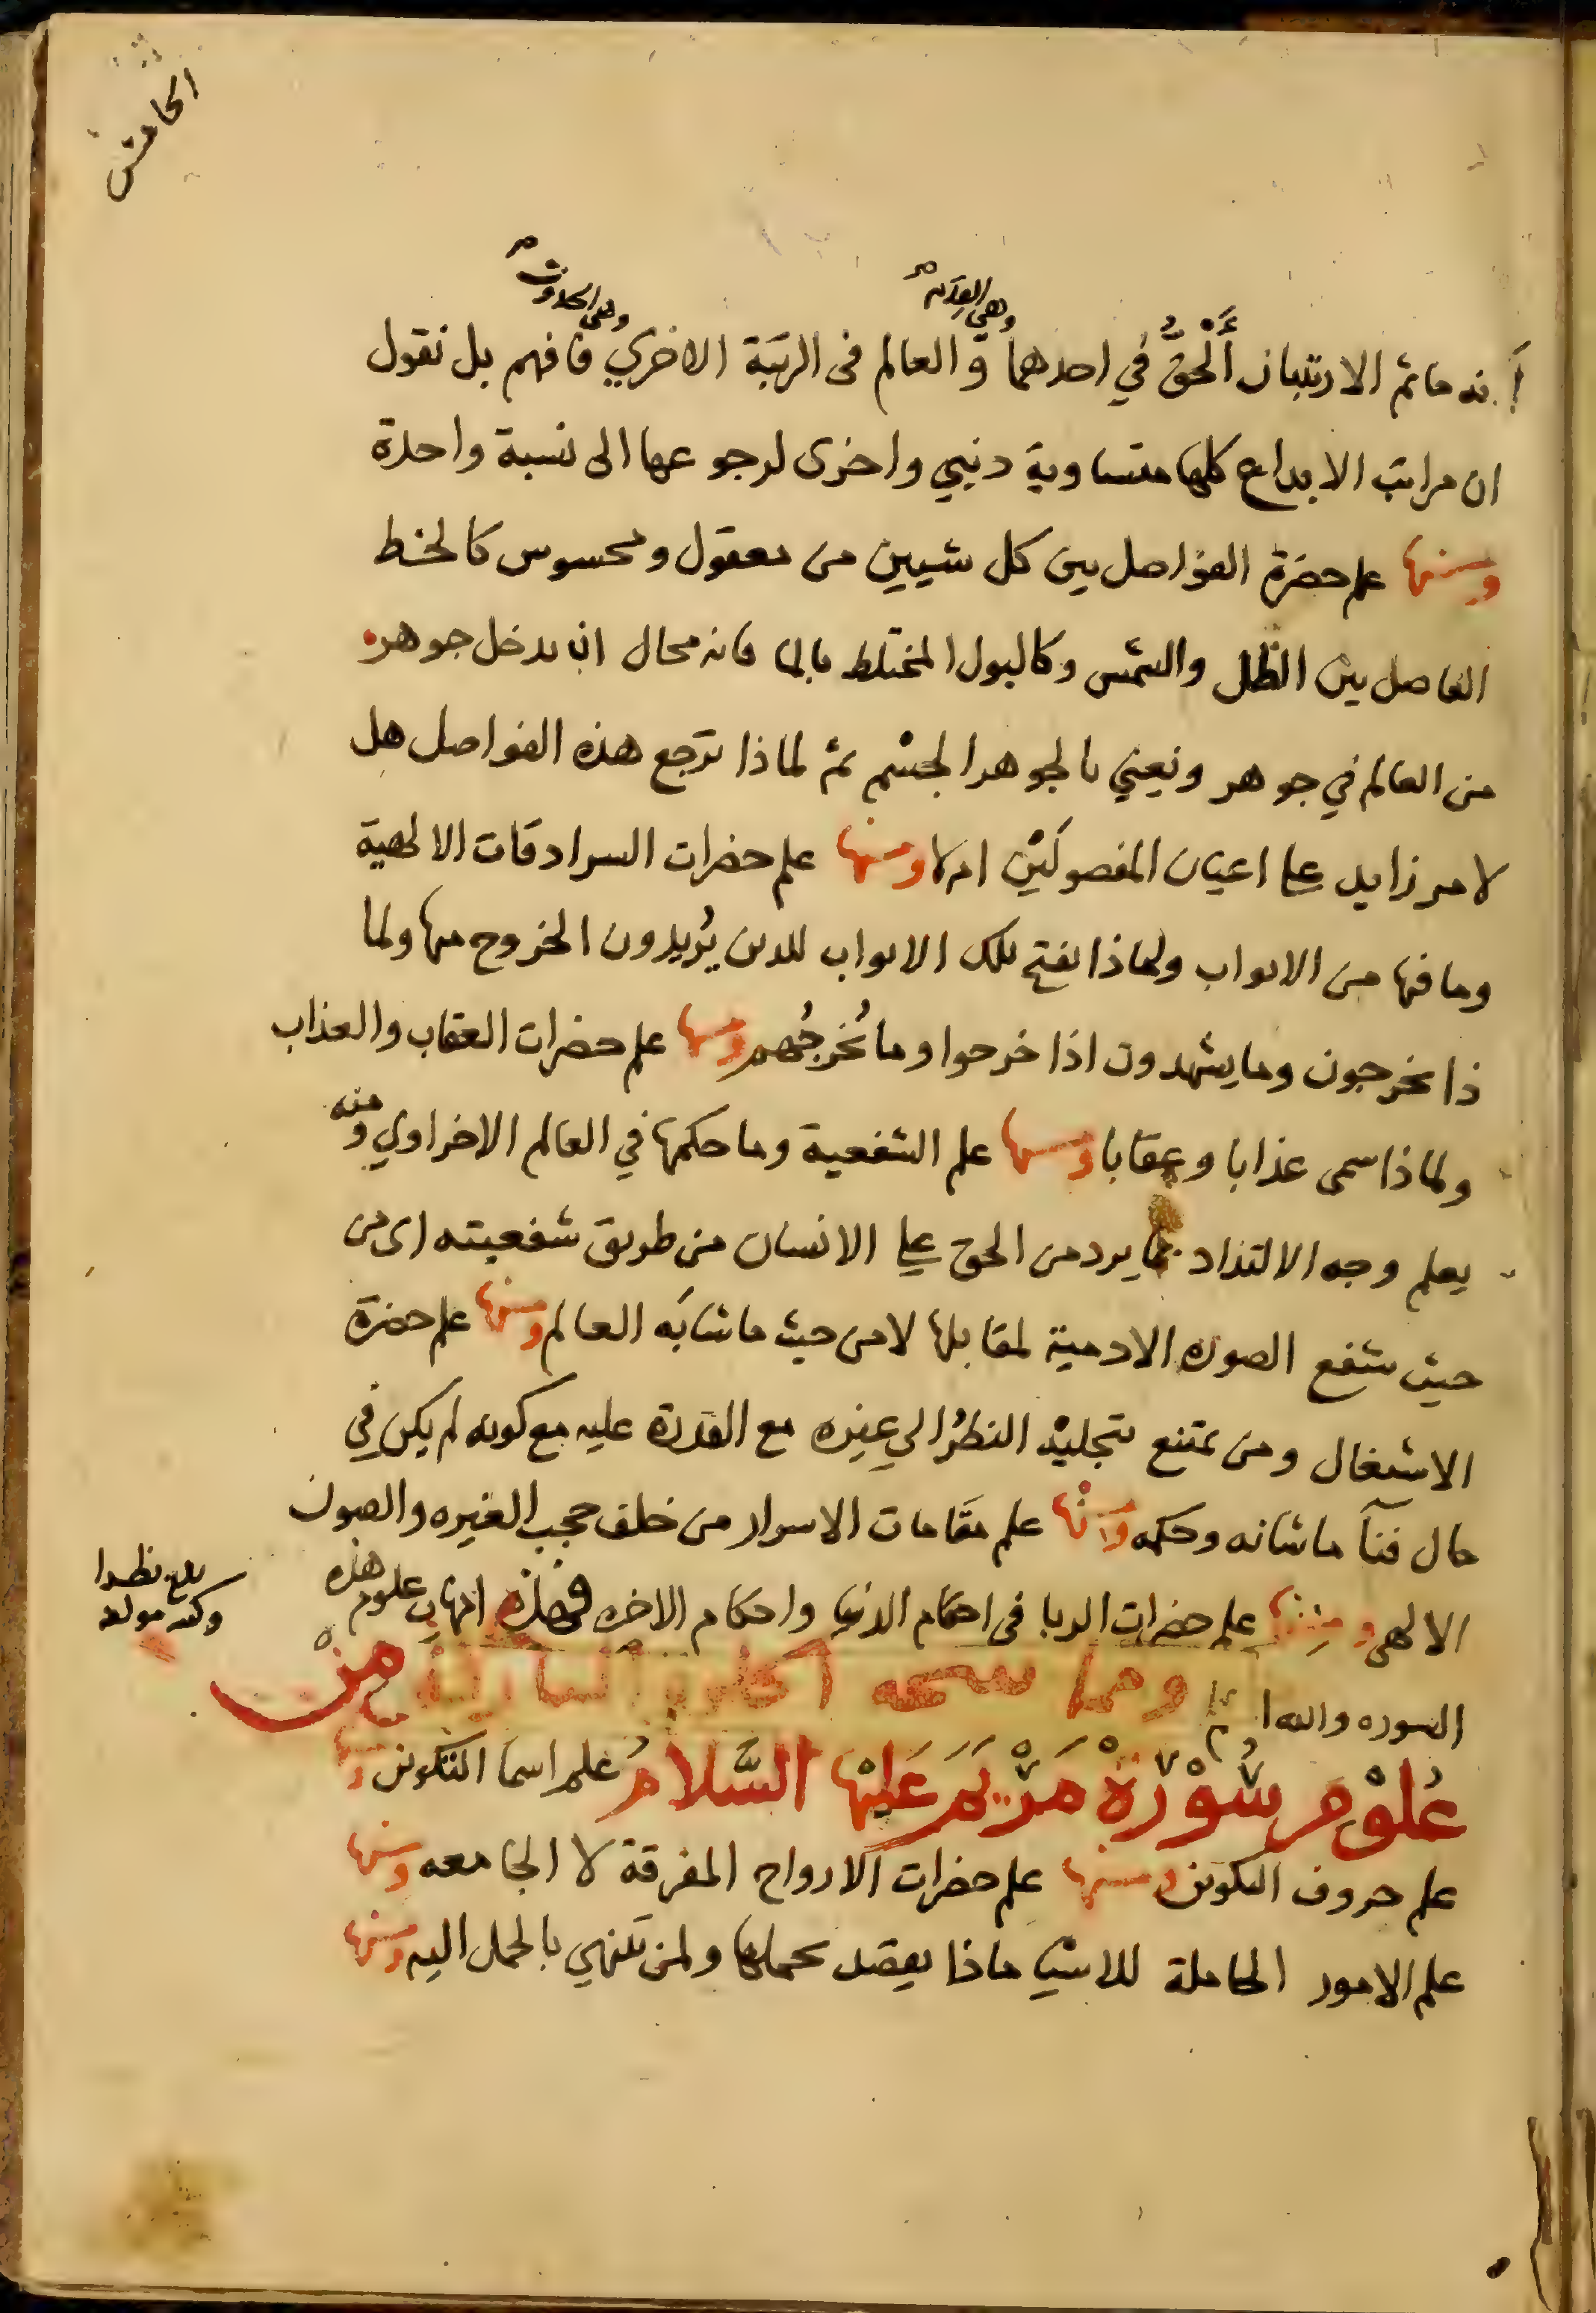 الخامس
وهي القدم
وهي الحدوث
انه ما ثم الا رتبتان أَلْحقُّ في احدهما و العالم فى الرتبة الاخري فافهم بل نقول
ان مراتب الابداع كلها متساوية دنيي واخرى لرجوعها الى نسبة واحدة
ومنها علم حضرة الفواصل بين كل شيين من معقول ومحسوس كالخط
الفاصل بين الظل والشمس وكالبول المختلط بالما فانه محال ان يدخل جوهر
من العالم في جوهر ونعني بالجوهر الجسْم ثم لماذا ترجع هذه الفواصل هل
لامر زايد على اعيان المفصولَيْن ام لا ومنها علم حضرات السرادقات الالهية
وما فيها من الابواب ولماذا تفتح تلك الابواب للذين يُريدون الخروج منها ولما
ذا يخرجون وما يشهدون اذا خرجوا وما يُخرجُهم ومنها علم حضرات العقاب والعذاب
ولماذا سمى عذابا وعقابا ومنها علم الشفعية وما حكمها في العالم الاخراوي ومنه
يعلم وجه الالتذاد بما يرد من الحق على الانسان من طريق شفعيته اى من
حيث شفع الصوره الادمية لمقابلها لا من حيث ما شابَه العالم ومنها علم حضرة
الاشتغال ومن يمتنع بتجليْه النظرُ الي غيره مع القدرة عليه مع كونه لم يكن في
حال فنآ ما شانه وحكمه ومنها علم مقامات الاسرار من خلف حجب الغيره والصون
الالهى ومنها علم حضرات الربا فى احكام الدنيا واحكام الاخره فهذه امهات علوم هذه
بلغ نظرا
السوره والله ا
ومما من
عُلوْم سُوْرَةْ مَرْيَمَ عَلَيْها السَّلامُ علم اسما التكوين ومنها
علم حروف التكوين ومنها علم حضرات الارواح المفرقة لا الجامعه ومنها
علم الامور الحاملة للاشيا ماذا يقصد بحملها ولمن تنتهي بالحمل اليه ومنها